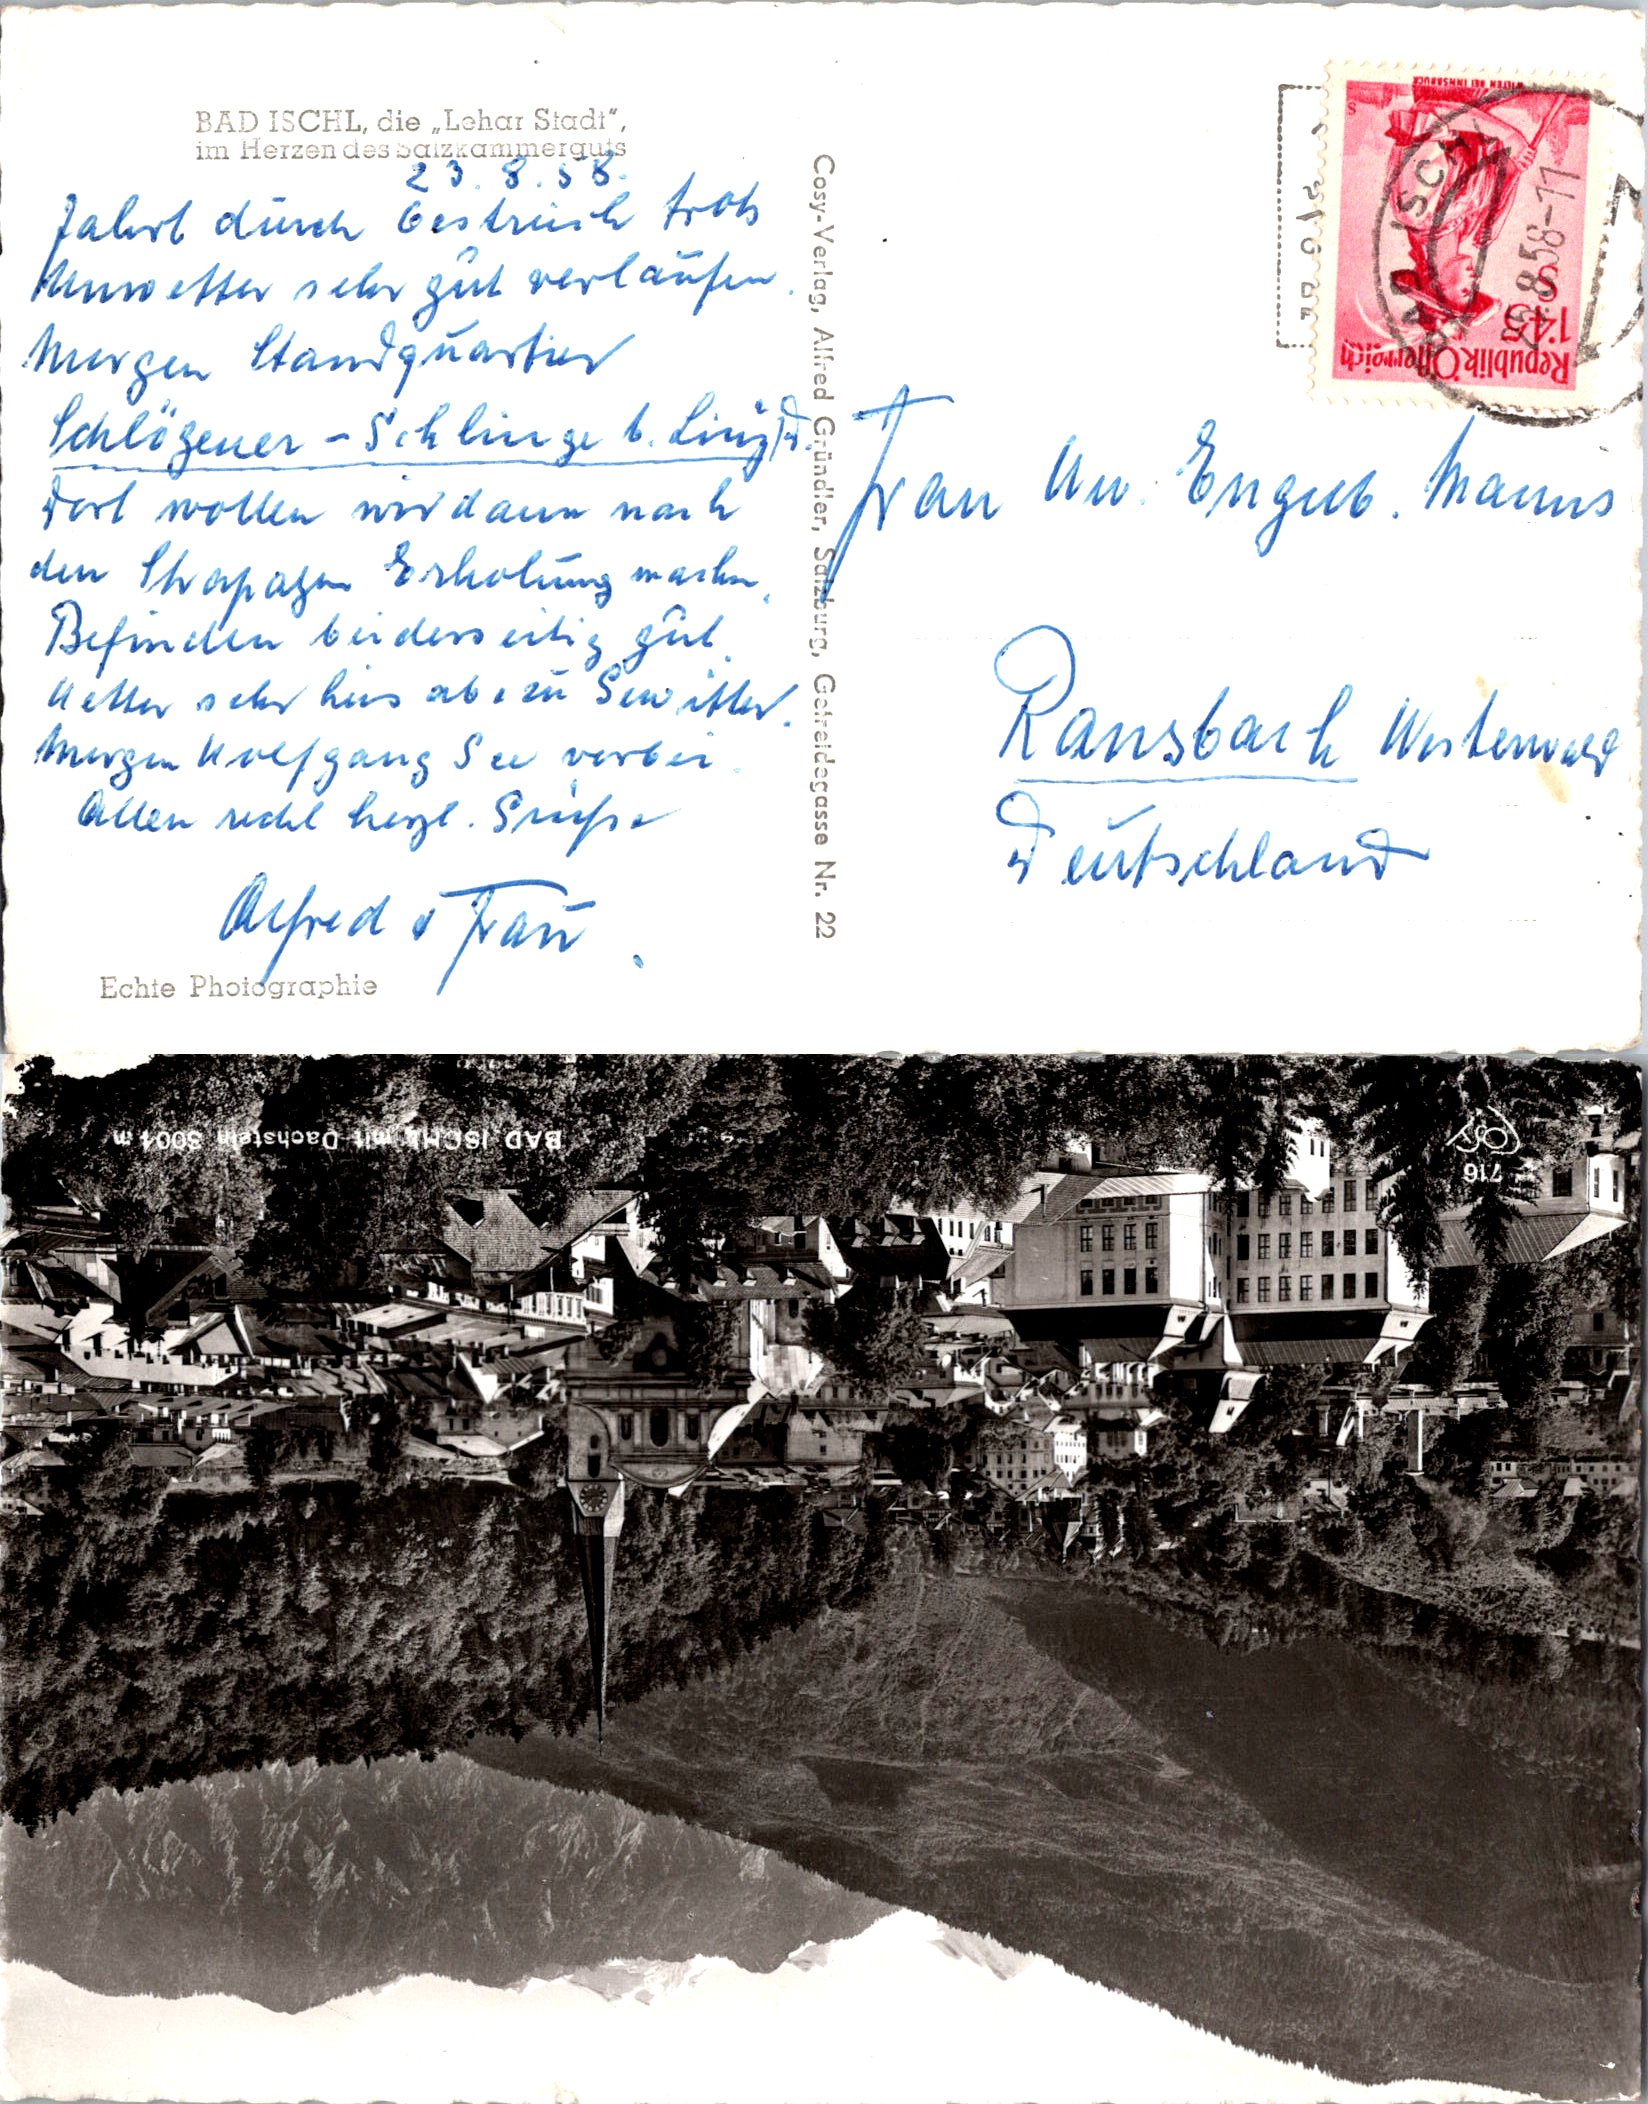 BAD ISCHL, die „Lehar Stadt“,
im Herzen des Salzkammerguts
23. 8. 58.
Fahrt durch Oestreich trotz
Unwetter sehr gut verlaufen.
Morgen Standquartier
Schlögener - Schlinge b. Linz
Dort wollen wir dann nach
den Strapazen Erholung machen.
Befinden beiderseitig gut.
Wetter sehr heis ab u zu Gewitter.
Morgen Wolfgang See vorbei.
Allen recht herzl. Grüsse
Alfred u Frau.
Echte Photographie
Cosy-Verlag, Alfred Gründler, Salzburg, Getreidegasse Nr. 22
WILTEN BEI INNSBRUCK
S 1·45
Republik Österreich
BAD ISCHL
8.58-11
Frau Ww. Engelb. Manns
Ransbach Westerwald
Deutschland
BAD ISCHL mit Dachstein 3004 m
716
Cosy